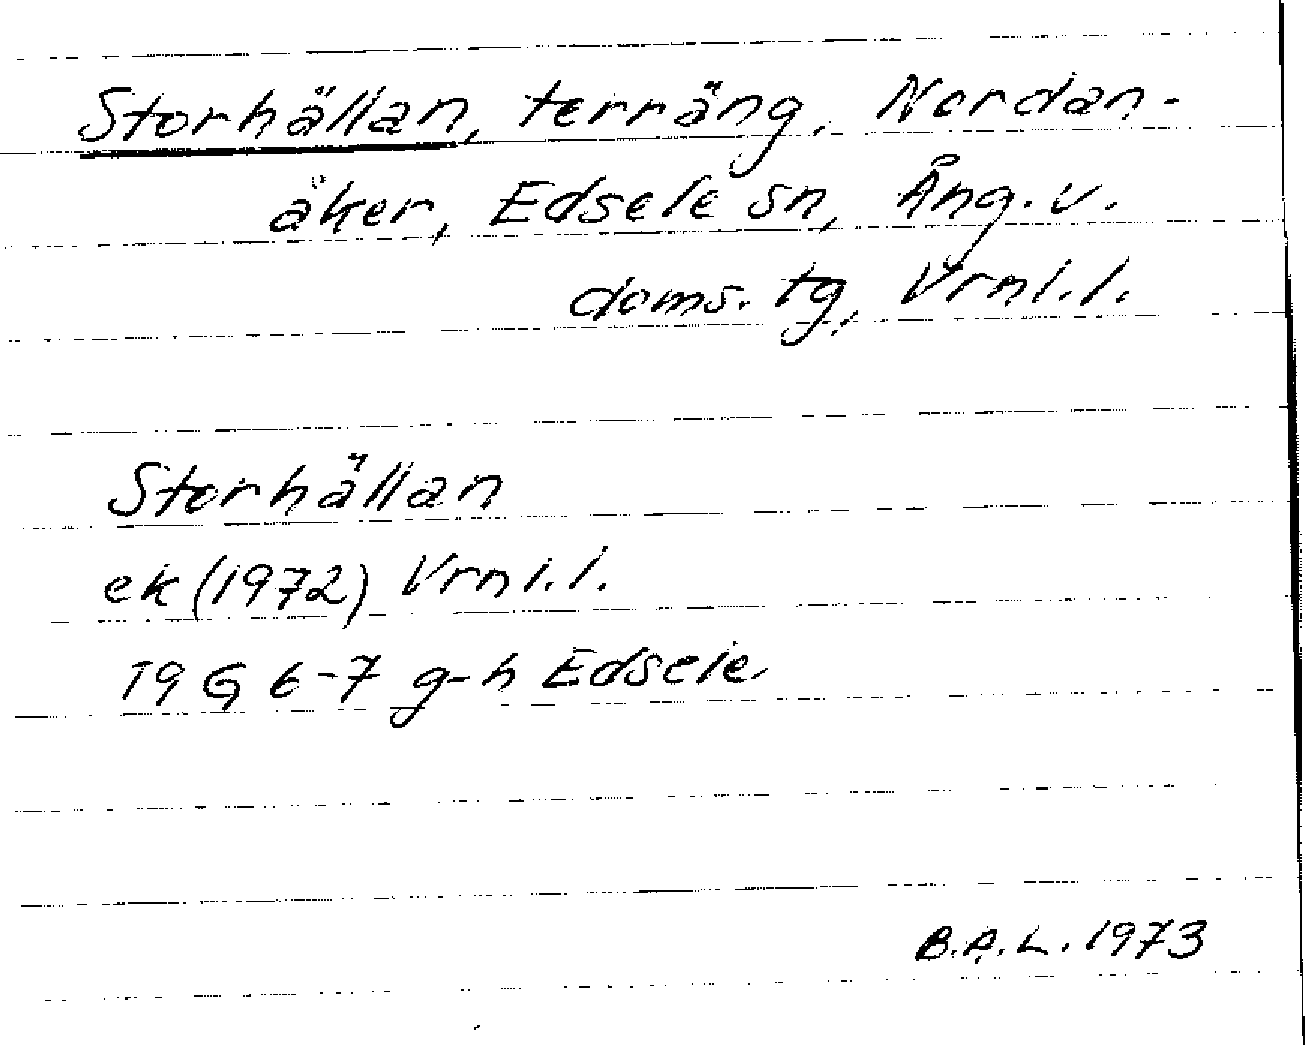 Storhällan, terräng, Nordan-
åker, Edsele sn, Ång. v.
doms. tg, Vrnl.l.
Storhällan
ek (1972) Vrnl.l.
19 G 6-7 g-h Edsele
B.A.L. 1973